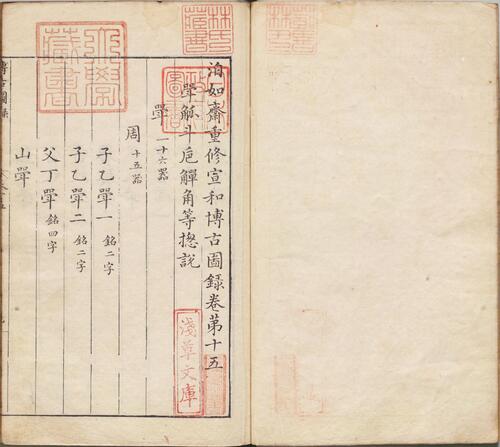 泊如齋重修宣和博古圖錄卷苐十五
斝觚斗巵觶角等揔說
斝 一十六器
周 十五器
子乙斝一 銘二字
子乙斝二 銘二字
父丁斝 銘四字
山斝
淺草文庫
林氏藏書
藏書